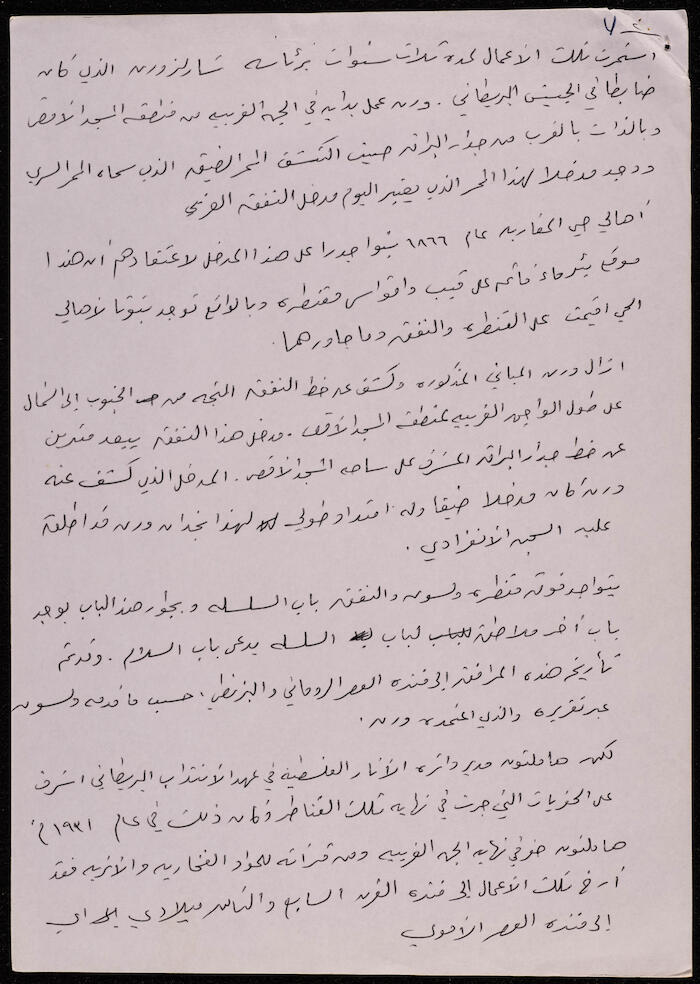 ٧
استمرت تلك الاعمال لمدة ثلاث سنوات برئاسة تشارلزورن الذي كان
ضابطا في الجيش البريطاني . ورن عمل بداية في الجهة الغربيه من منطقة المسجد الاقصى
وبالذات بالقرب من جدار البراق حيث اكتشف الممر الضيق الذي سماه الممر السري
ووجد مدخلا لهذا الممر الذي يعتبر اليوم مدخل النفق الغربي
أهالي حي المغاربه عام ١٨٦٦ بنوا جدرا على هذا المدخل لاعتقادهم أن هذا
موقع بئر ماء قائمه على قبب واقواس مقنطره وبالواقع توجد بيوتا لاهالي
الحي اقيمت على القنطره والنفق وما جاورهما .
ازال ورن المباني المذكوره وكشف عن خط النفق المتجه من الجنوب إلى الشمال
على طول الواجهه الغربيه لمنطقة المسجد الاقصى . مدخل هذا النفق يبعد مترين
عن خط جدار البراق المشرف على ساحة المسجد الاقصى . المدخل الذي كشف عنه
ورن كان مدخلا ضيقا وله امتداد طولي لهذا نجد ان ورن قد اطلق
عليه السجن الانفرادي .
يتواجد فوق قنطره ولسون والنفق باب السلسله وبجوار هذا الباب يوجد
باب أخر ملاصق لباب السلسله يدعى باب السلام . وقد تم
تأريخ هذه المرافق إلى فترة العصر الروماني والبيزنطي . حسب ما قدمه ولسون
عبر تقريره والذي اعتمده ورن .
لكن هاملتون مدير دائرة الأثار الفلسطينيه في عهد الانتداب البريطاني اشرف
على الحفريات التي جرت في نهاية تلك القناطر وكان ذلك في عام ١٩٣١ م
هاملتون حفر في نهاية الجهه الغربيه ومن قرائته للمواد الفخاريه والاثريه فقد
أرخ تلك الاعمال إلى فترة القرن السابع والثامن ميلادي اي
إلى فترة العصر الأموي